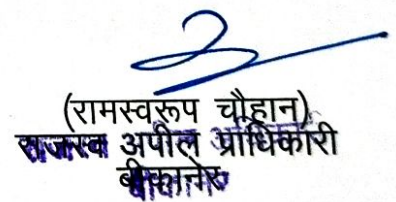 (रामस्वरूप चौहान)
राजस्व अपील प्राधिकारी
बीकानेर